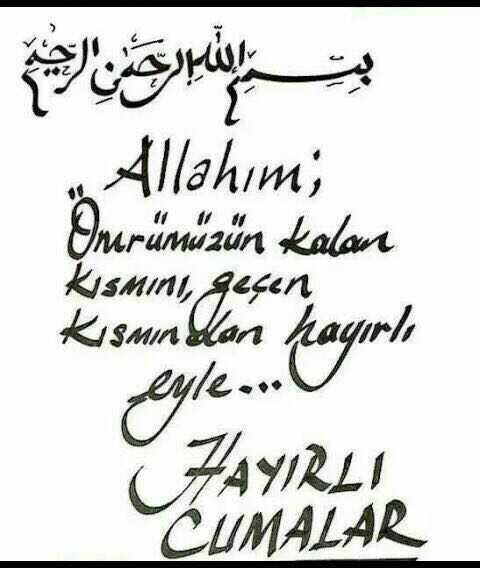 بسم الله الرحمن الرحيم
Allahım;
Ömrümüzün kalan
kısmını, geçen
kısmından hayırlı
eyle...
HAYIRLI
CUMALAR